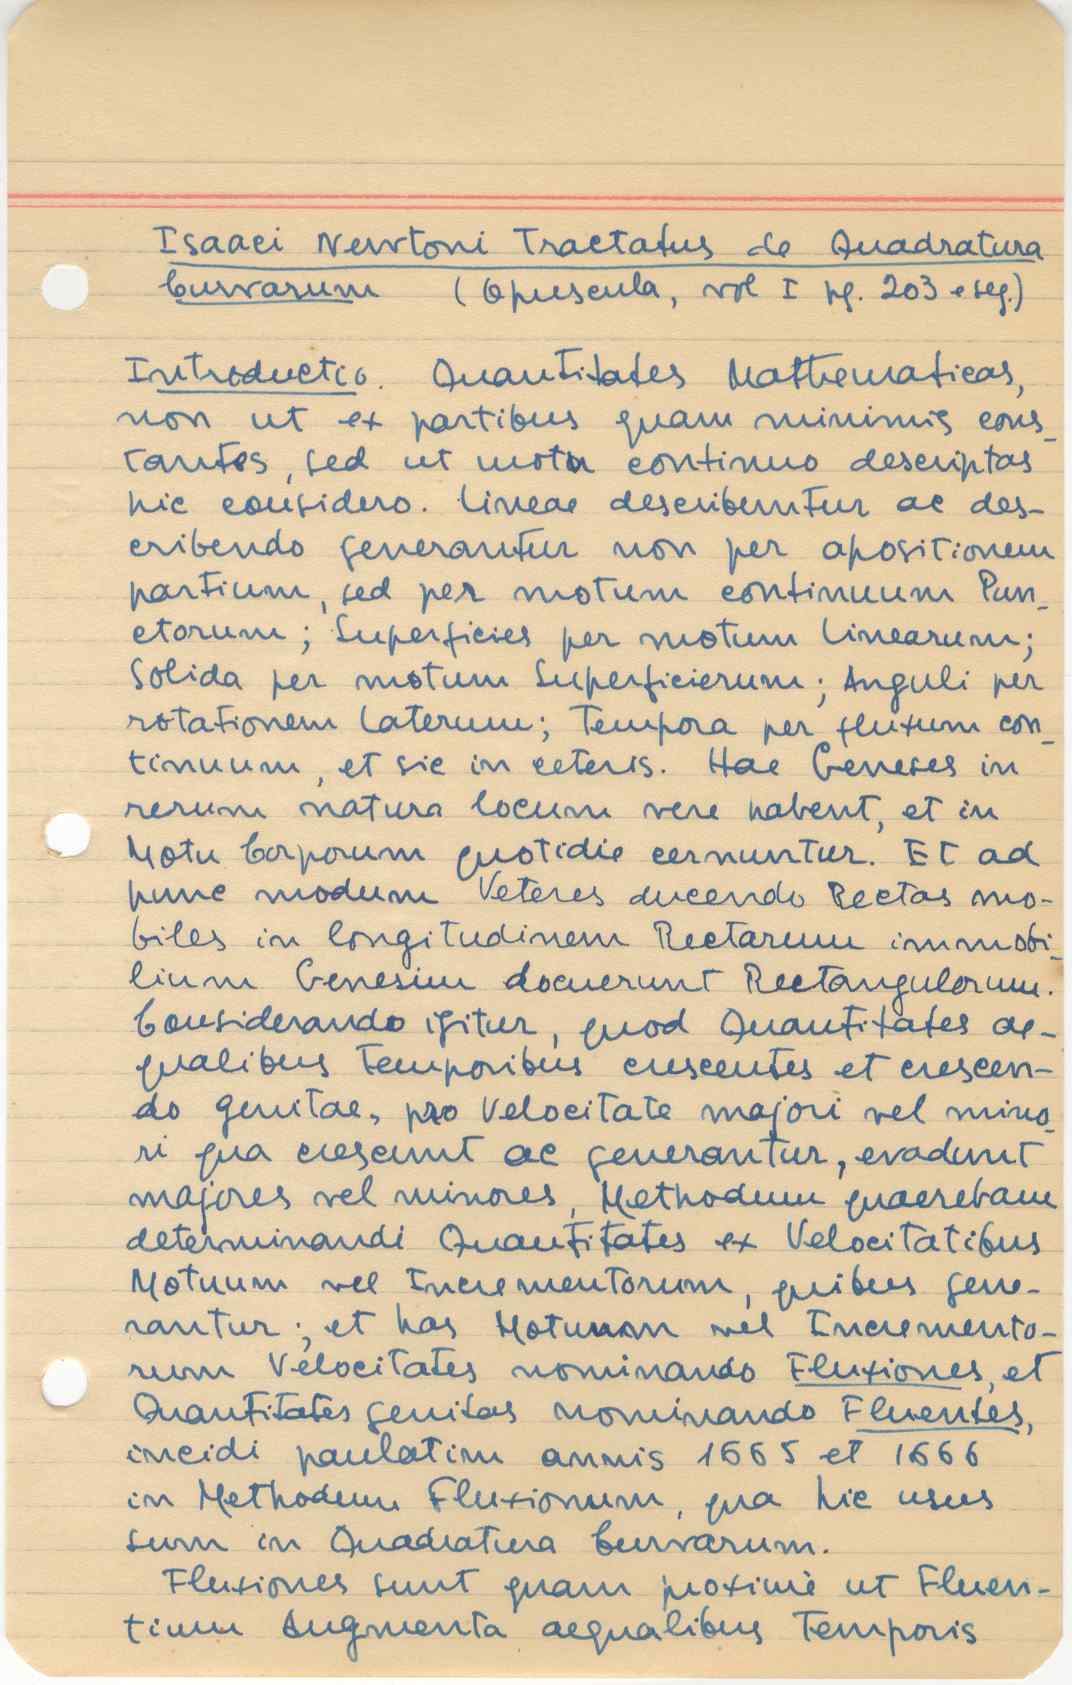 Isaaci Newtoni Tractatus de Quadratura
Curvarum (Opuscula, vol I pg. 203 e seg.)
Introductio. Quantitates Mathematicas,
non ut ex partibus quam minimis cons-
tantes, sed ut motu continuo descriptas
hic considero. Lineae describuntur ac des-
cribendo generantur non per apositionem
partium, sed per motum continuum Punc-
ctorum; Superficies per motum Linearum;
Solida per motum Superficierum; Anguli per
rotationem Laterum; Tempora per fluxum con-
tinuum, et sic in ceteris. Hae Geneses in
rerum natura locum vere habent, et in
Motu Corporum quotidie cernuntur. Et ad
hunc modum Veteres ducendo Rectas mo-
biles in longitudinem Rectarum immobi-
lium Genesim docuerunt Rectangulorum.
Considerando igitur, quod Quantitates ae-
qualibus Temporibus crescentes et crescen-
do genitae, pro Velocitate majori vel mino-
ri qua crescunt ac generantur, evadunt
majores vel minores, Methodum quaerebam
determinandi Quantitates ex Velocitatibus
Motuum vel Incrementorum, quibus gene-
rantur; et has Motuum vel Incremento-
rum Velocitates nominando Fluxiones, et
Quantitates genitas nominando Fluentes,
incidi paulatim annis 1665 et 1666
in Methodum Fluxionum, qua hic usus
sum in Quadratura Curvarum.
Fluxiones sunt quam proxime ut Fluen-
tium Augmenta aequalibus Temporis